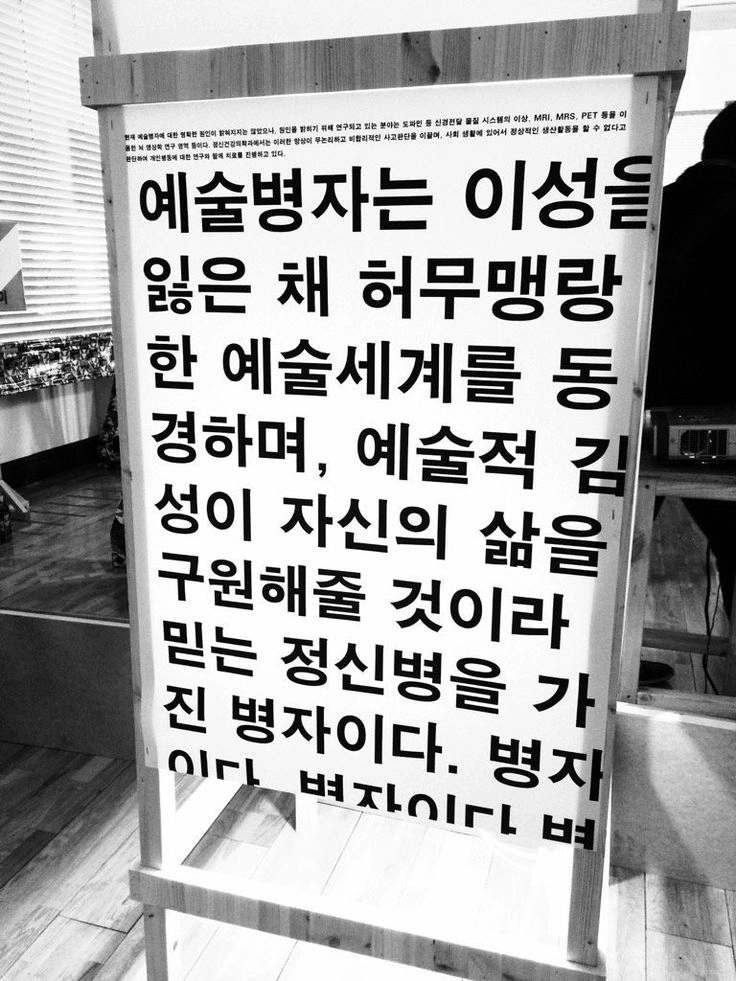 현재 예술병자에 대한 명확한 원인이 밝혀지지는 않았으나, 원인을 밝히기 위해 연구되고 있는 분야는 도파민 등 신경전달 물질 시스템의 이상, MRI, MRS, PET 등을 이
용한 뇌 영상학 연구 영역 등이다. 정신건강의학과에서는 이러한 망상이 무논리하고 비합리적인 사고판단을 이끌며, 사회 생활에 있어서 정상적인 생산활동을 할 수 없다고
판단하여 개인행동에 대한 연구와 함께 치료를 진행하고 있다.
예술병자는 이성을
잃은 채 허무맹랑
한 예술세계를 동
경하며, 예술적 김
성이 자신의 삶을
구원해줄 것이라
믿는 정신병을 가
진 병자이다. 병자
이다. 병자이다 병
이